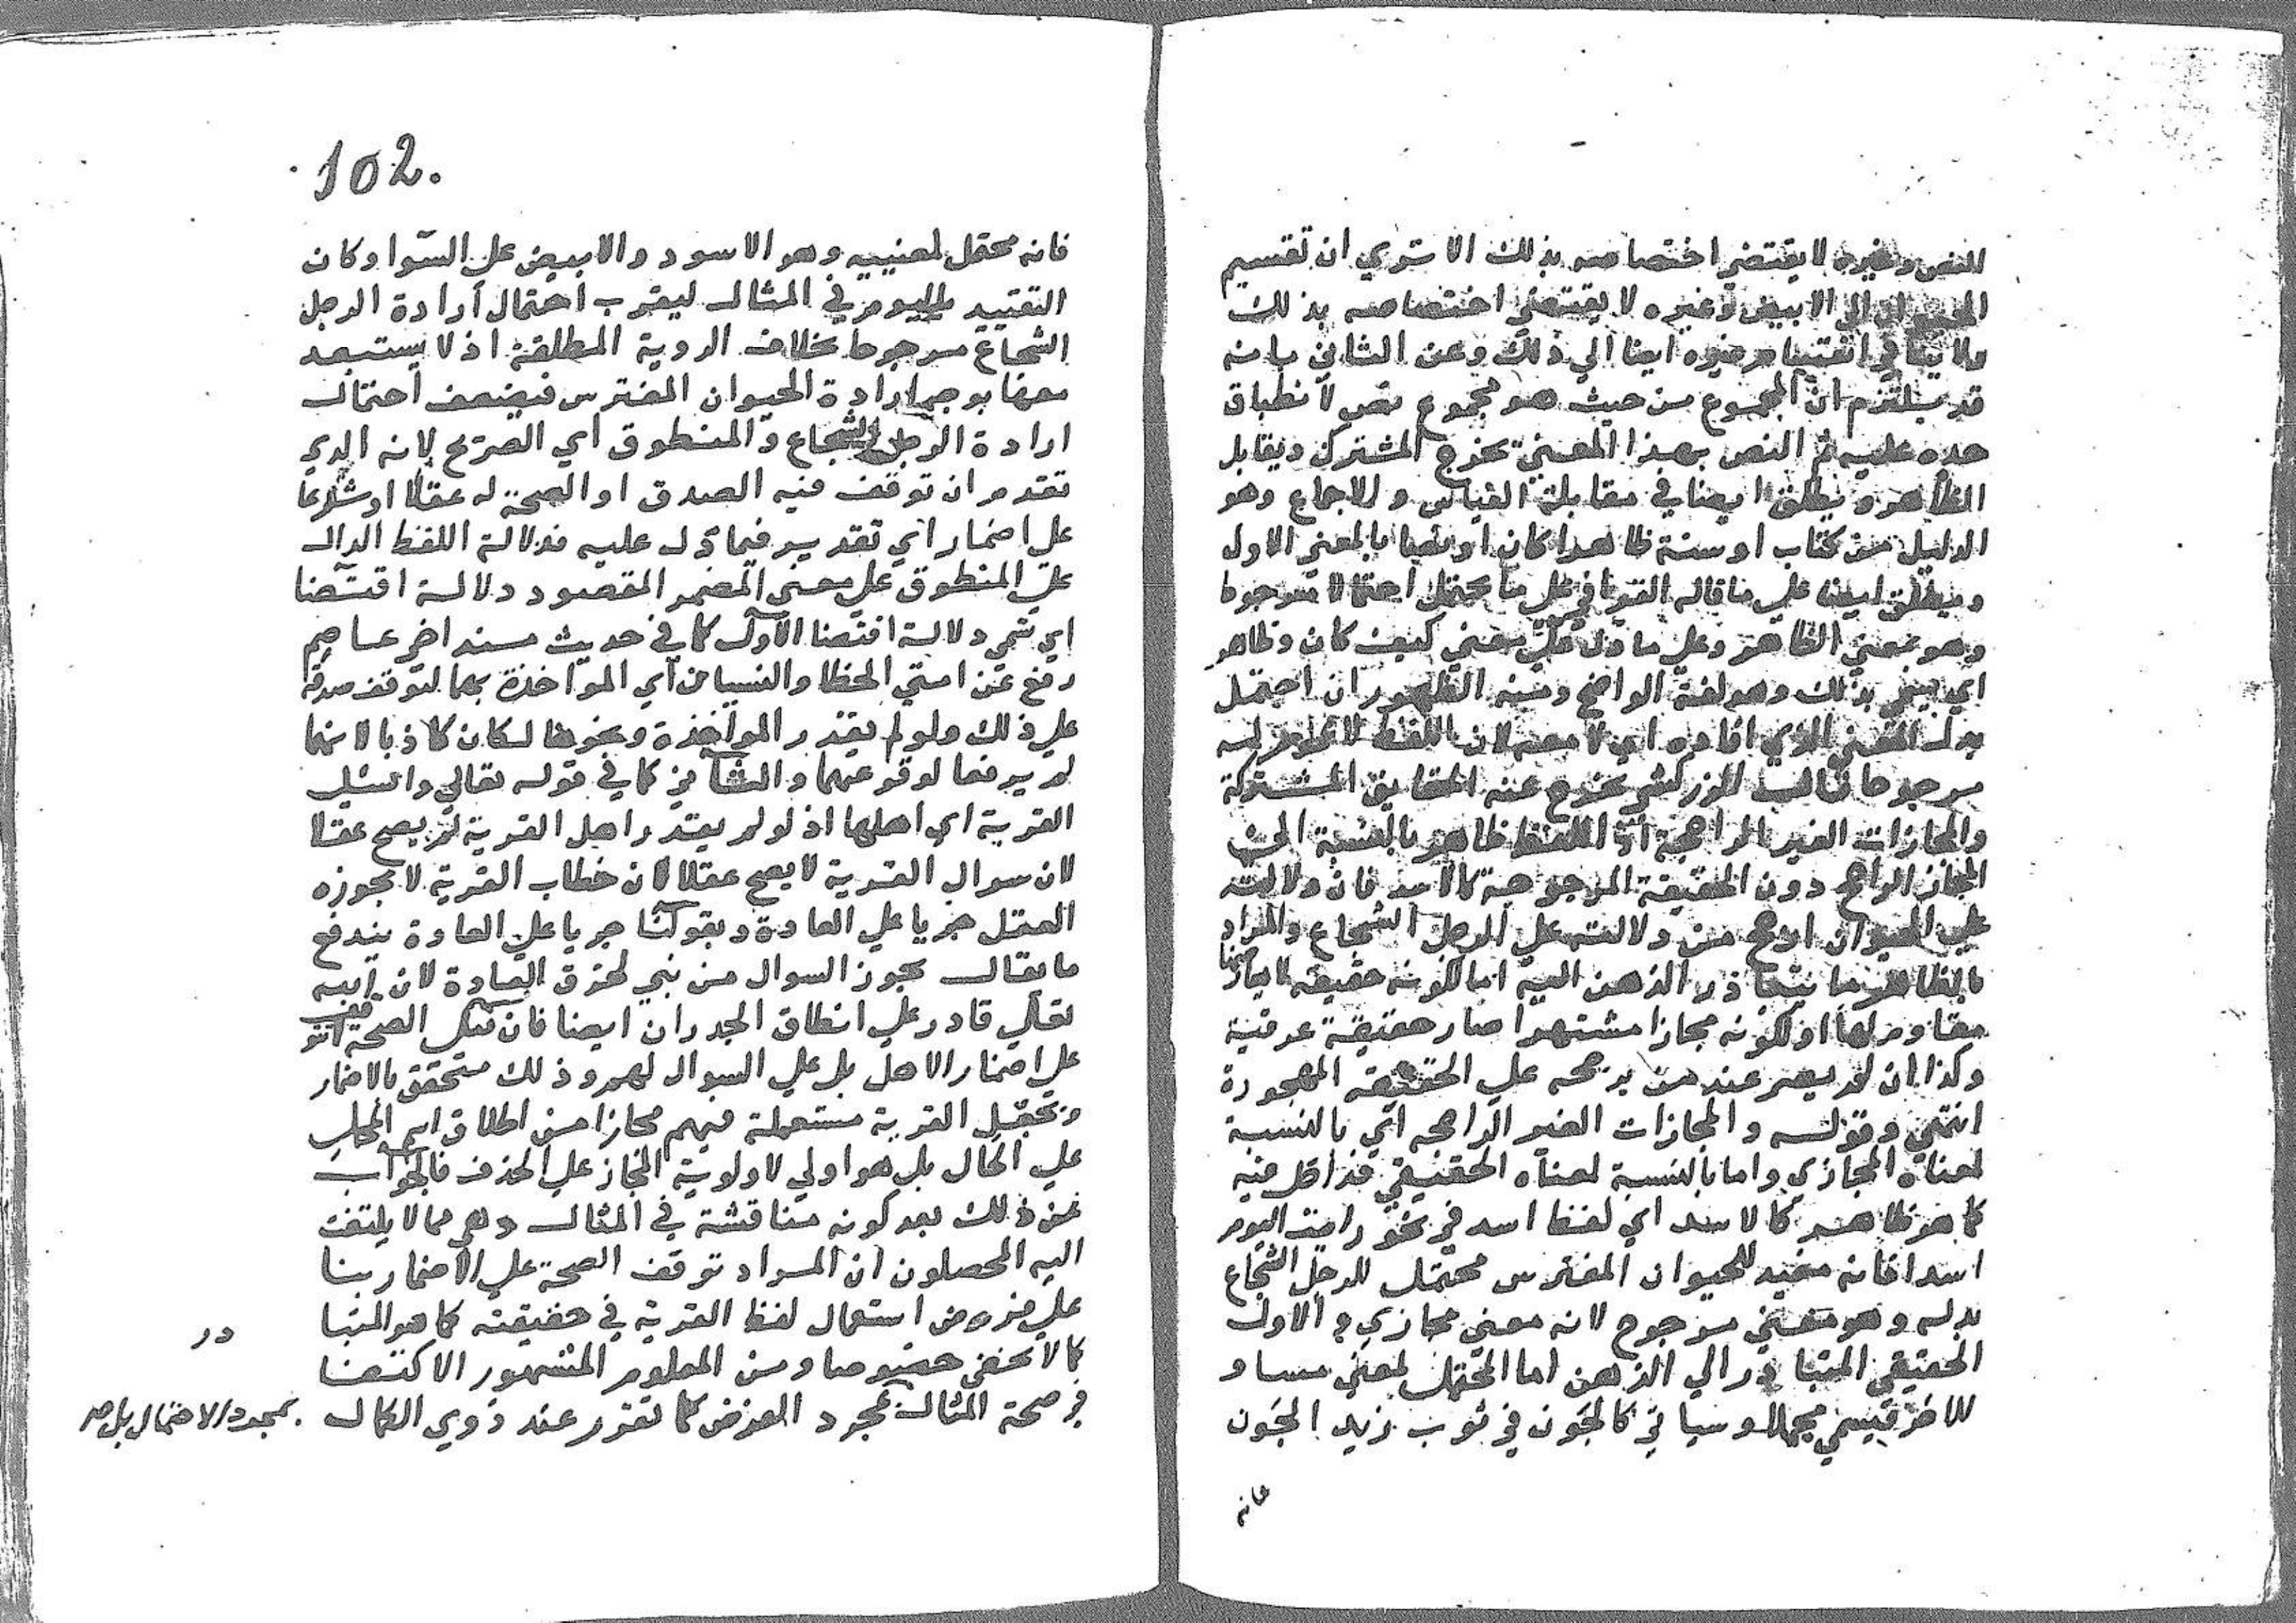 النص وغيره لا يقتضي اختصاصه بذلك الا تري ان تقسيم
الحيوان الي الابيض وغيره لا يقتضي اختصاصه بذلك
ولا ينافي انقسام غيره ايضا الي ذلك وعن الثاني بانه
قد يلتزم ان المجموع من حيث هو مجموع نص لانطباق
حده عليه ثم النص بهذا المعني يخرج المشترك ويقابل
الظاهر ويطلق ايضا في مقابلة القياس والاجماع وهو
الدليل من كتاب او سنة ظاهرا كان او نصا بالمعني الاول
ويطلق ايضا علي ما قاله القرافي علي ما يحتمل احتمالا مرجوحا
وهو بمعني الظاهر وعلي ما دل علي معني كيف كان وظاهر
اي يسمي بذلك وهو لغة الواضح ومنه الظهور ان احتمل
بدل المعني الذي افاده اي لا معه لان اللفظ لا عموم له
مرجوحا قال الزركشي يخرج عنه الحقايق المشتركة
والمجازات الغير الراجحة اذ اللفظ ظاهر بالنسبة الي
المجاز الراجح دون الحقيقة المرجوحة كالاسد فان دلالته
علي الحيوان ارجح من دلالته علي الرجل الشجاع والمراد
بالظاهر ما يتبادر الذهن اليه اما لكونه حقيقة لا مجاز
مقاوم لها او لكونه مجازا مشتهرا صار حقيقة عرفية
وكذا ان لم يصر عند من يرجحه علي الحقيقة المهجورة
انتهي وقوله والمجازات الغير الراجحه اي بالنسبة
لمعناه المجازي واما بالنسبة لمعناه الحقيقي فداخل فيه
كما هو ظاهر كالاسد اي لفظ اسد في نحو رايت اليوم
اسدا فانه مفيد للحيوان المفترس محتمل للرجل الشجاع
بدله وهو معني مرجوح لانه معني مجازي والاول
الحقيقي المتبادر الي الذهن اما المحتمل لمعني مساو
للاخر فيسمي مجملا وسياتي كالجون في ثوب زيد الجون
فانه
102.
فانه محتمل لمعنييه وهو الاسود والابيض علي السوا وكان
التقييد باليوم في المثال ليقرب احتمال ارادة الرجل
الشجاع مرجوحا بخلاف الروية المطلقة اذ لا يستبعد
معها بوجه ارادة الحيوان المفترس فيضعف احتمال
ارادة الرجل الشجاع والمنطوق اي الصريح لانه الذي
تقدم ان توقف فيه الصدق او الصحة له عقلا او شرعا
علي اضمار اي تقدير فيما دل عليه فدلالة اللفظ الدال
علي المنطوق علي معني المضمر المقصود دلالة اقتضا
اي تسمي دلالة اقتضا الاول كما في حديث مسند اخي عاصم
رفع عن امتي الخطا والنسيان اي المواخذة بهما لتوقف صدقه
علي ذلك ولو لم يقدر المواخذة ونحوها لكان كاذبا لانهما
لم يرفعا لوقوعهما والثاني كما في قوله تعالي واسئل
القرية اي اهلها اذ لو لم يقدر اهل القرية لم يصح عقلا
لان سوال القرية لا يصح عقلا لان خطاب القرية لا يجوزه
العقل جريا علي العادة وبقولنا جريا علي العادة يندفع
ما يقال يجوز السوال من نبي لخرق العادة لان الله
تعالي قادر علي انطاق الجدران ايضا فان قيل الصحة
علي اضمار الاهل بل علي السوال لهم وذلك متحقق بالاضمار
وبجعل القرية مستعملة فيهم مجازا من اطلاق اسم المحل
علي الحال بل هو اولي لاولوية المجاز علي الحذف فالجواب
عن ذلك بعد كونه مناقشة في المثال وهي مما لا يلتفت
اليه المحصلون ان المراد توقف الصحة علي الاضمار بنا
علي فرض استعمال لفظ القرية في حقيقته كما هو المتبا
در
كما لا يخفي خصوصا ومن المعلوم المشهور الاكتفا
في صحة المثال بمجرد الفرض كما تقرر عند ذوي الكمال
بمجرد الاحتمال بل